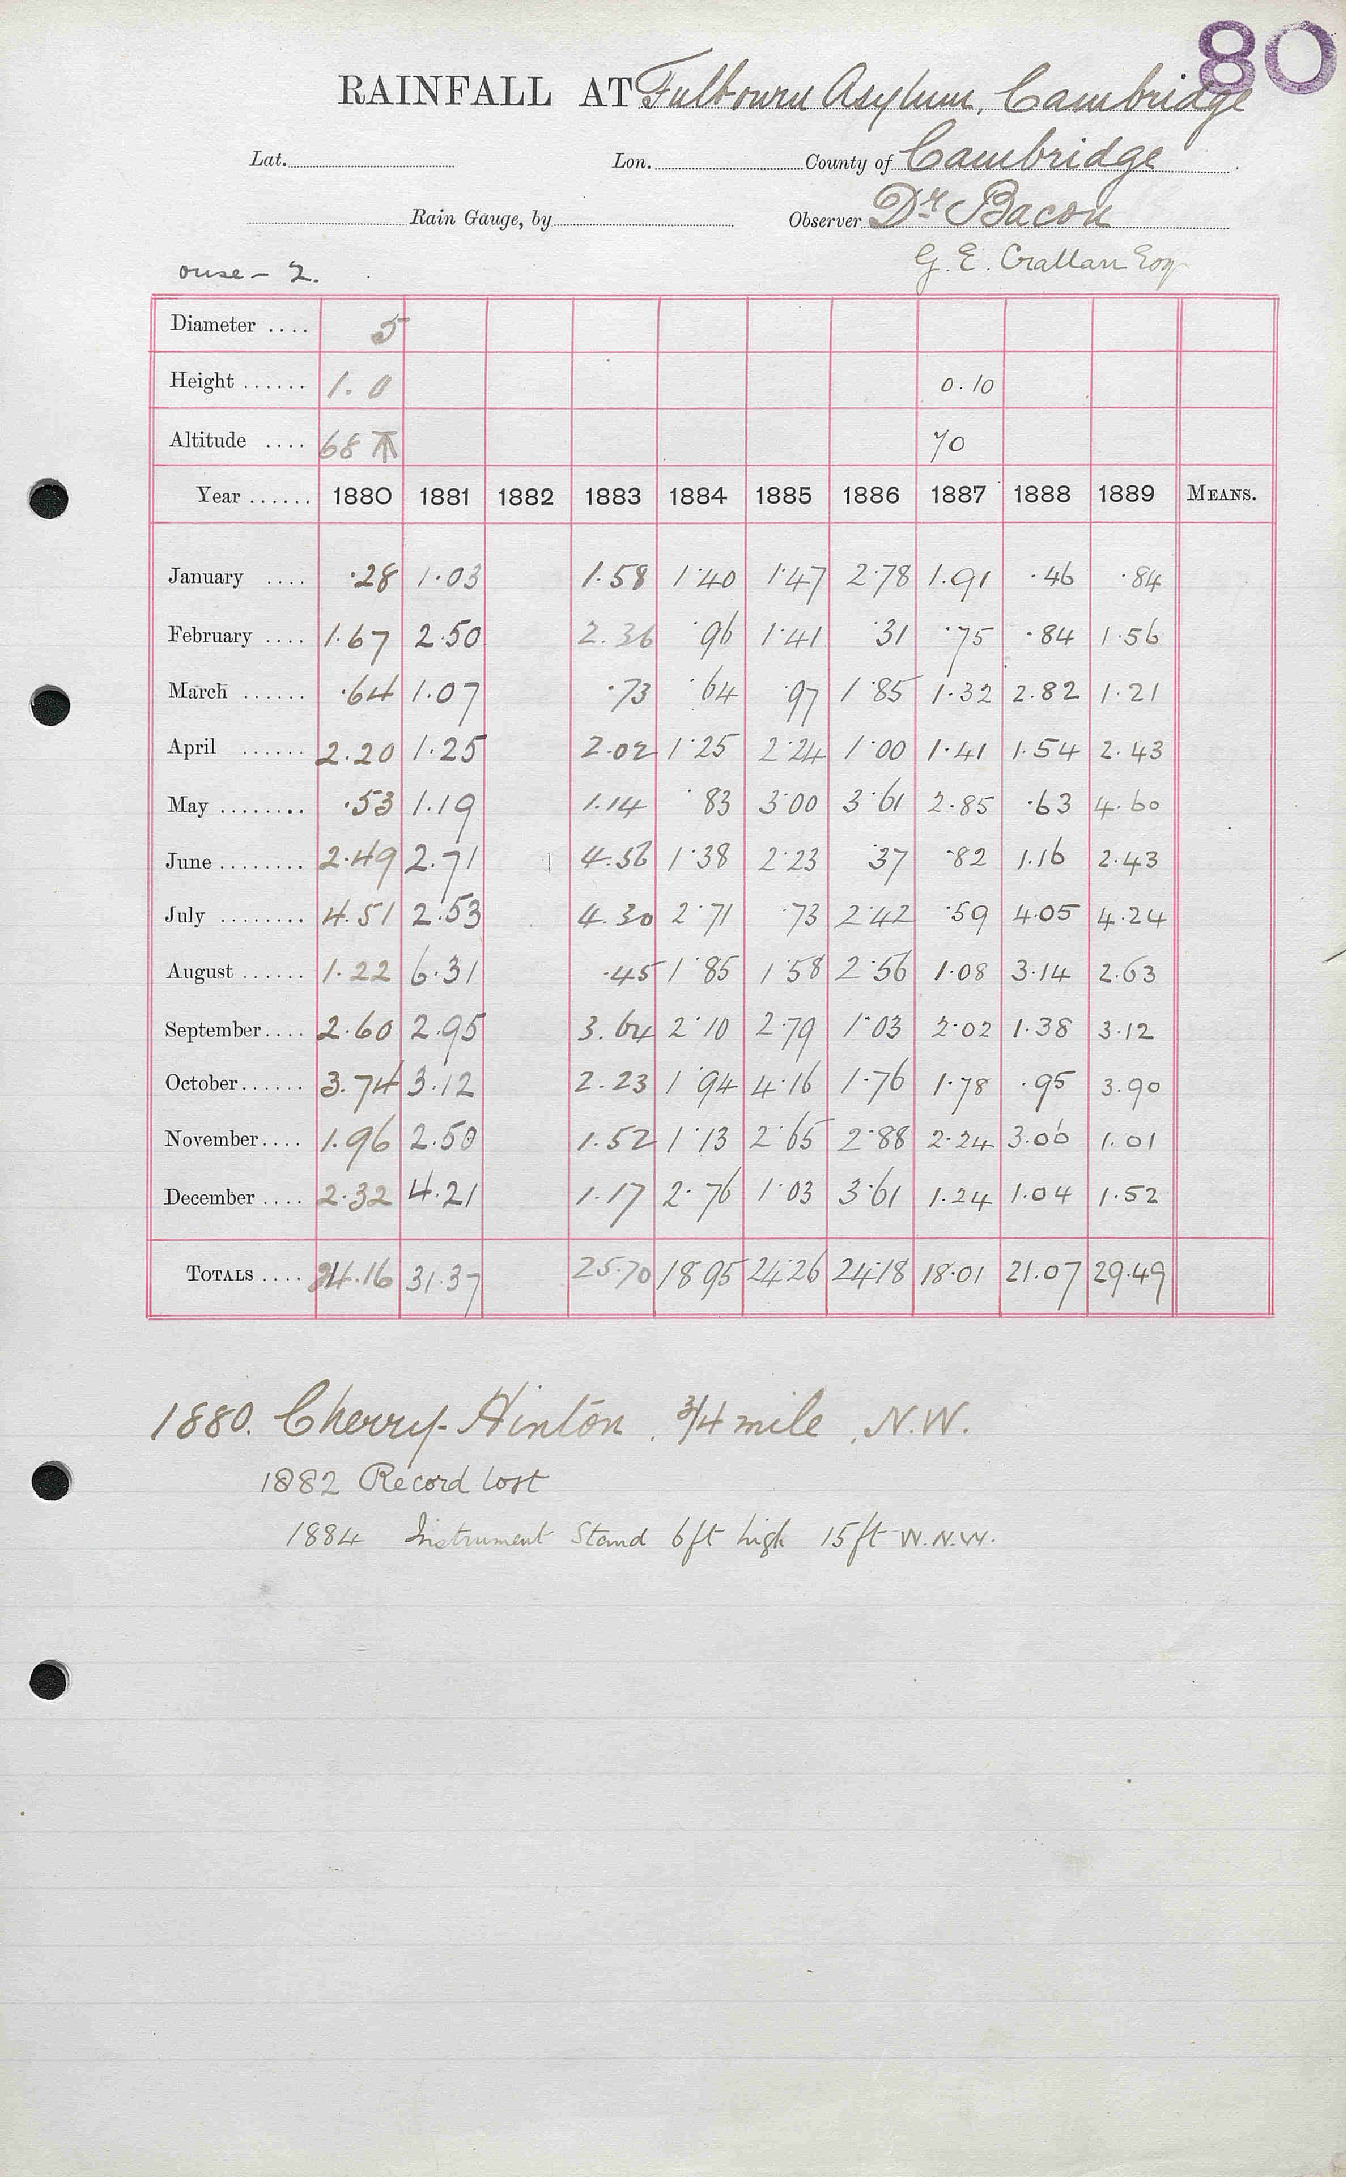 80
RAINFALL AT Fulbourn Asylum, Cambridge
Lat. Lon. County of Cambridge
Rain Gauge, by Observer Dr Bacon
G. E. Crallan Esq
ouse - 2.
Diameter .... 5
Height ...... 1.0 0.10
Altitude .... 68 70
Year ...... 1880 1881 1882 1883 1884 1885 1886 1887 1888 1889 MEANS.
January .... .28 1.03 1.58 1.40 1.47 2.78 1.91 .46 .84
February .... 1.67 2.50 2.36 .96 1.41 .31 .75 .84 1.56
March ...... .64 1.07 .73 .64 .97 1.85 1.32 2.82 1.21
April ...... 2.20 1.25 2.02 1.25 2.24 1.00 1.41 1.54 2.43
May ........ .53 1.19 1.14 .83 3.00 3.61 2.85 .63 4.60
June ........ 2.49 2.71 4.56 1.38 2.23 .37 .82 1.16 2.43
July ........ 4.51 2.53 4.30 2.71 .73 2.42 .59 4.05 4.24
August ...... 1.22 6.31 .45 1.85 1.58 2.56 1.08 3.14 2.63
September .... 2.60 2.95 3.64 2.10 2.79 1.03 2.02 1.38 3.12
October ...... 3.74 3.12 2.23 1.94 4.16 1.76 1.78 .95 3.90
November .... 1.96 2.50 1.52 1.13 2.65 2.88 2.24 3.06 1.01
December .... 2.32 4.21 1.17 2.76 1.03 3.61 1.24 1.04 1.52
TOTALS .... 24.16 31.37 25.70 18.95 24.26 24.18 18.01 21.07 29.49
1880. Cherry-Hinton. 3/4 mile N.W.
1882 Record lost
1884 Instrument Stand 6ft high 15ft W.N.W.